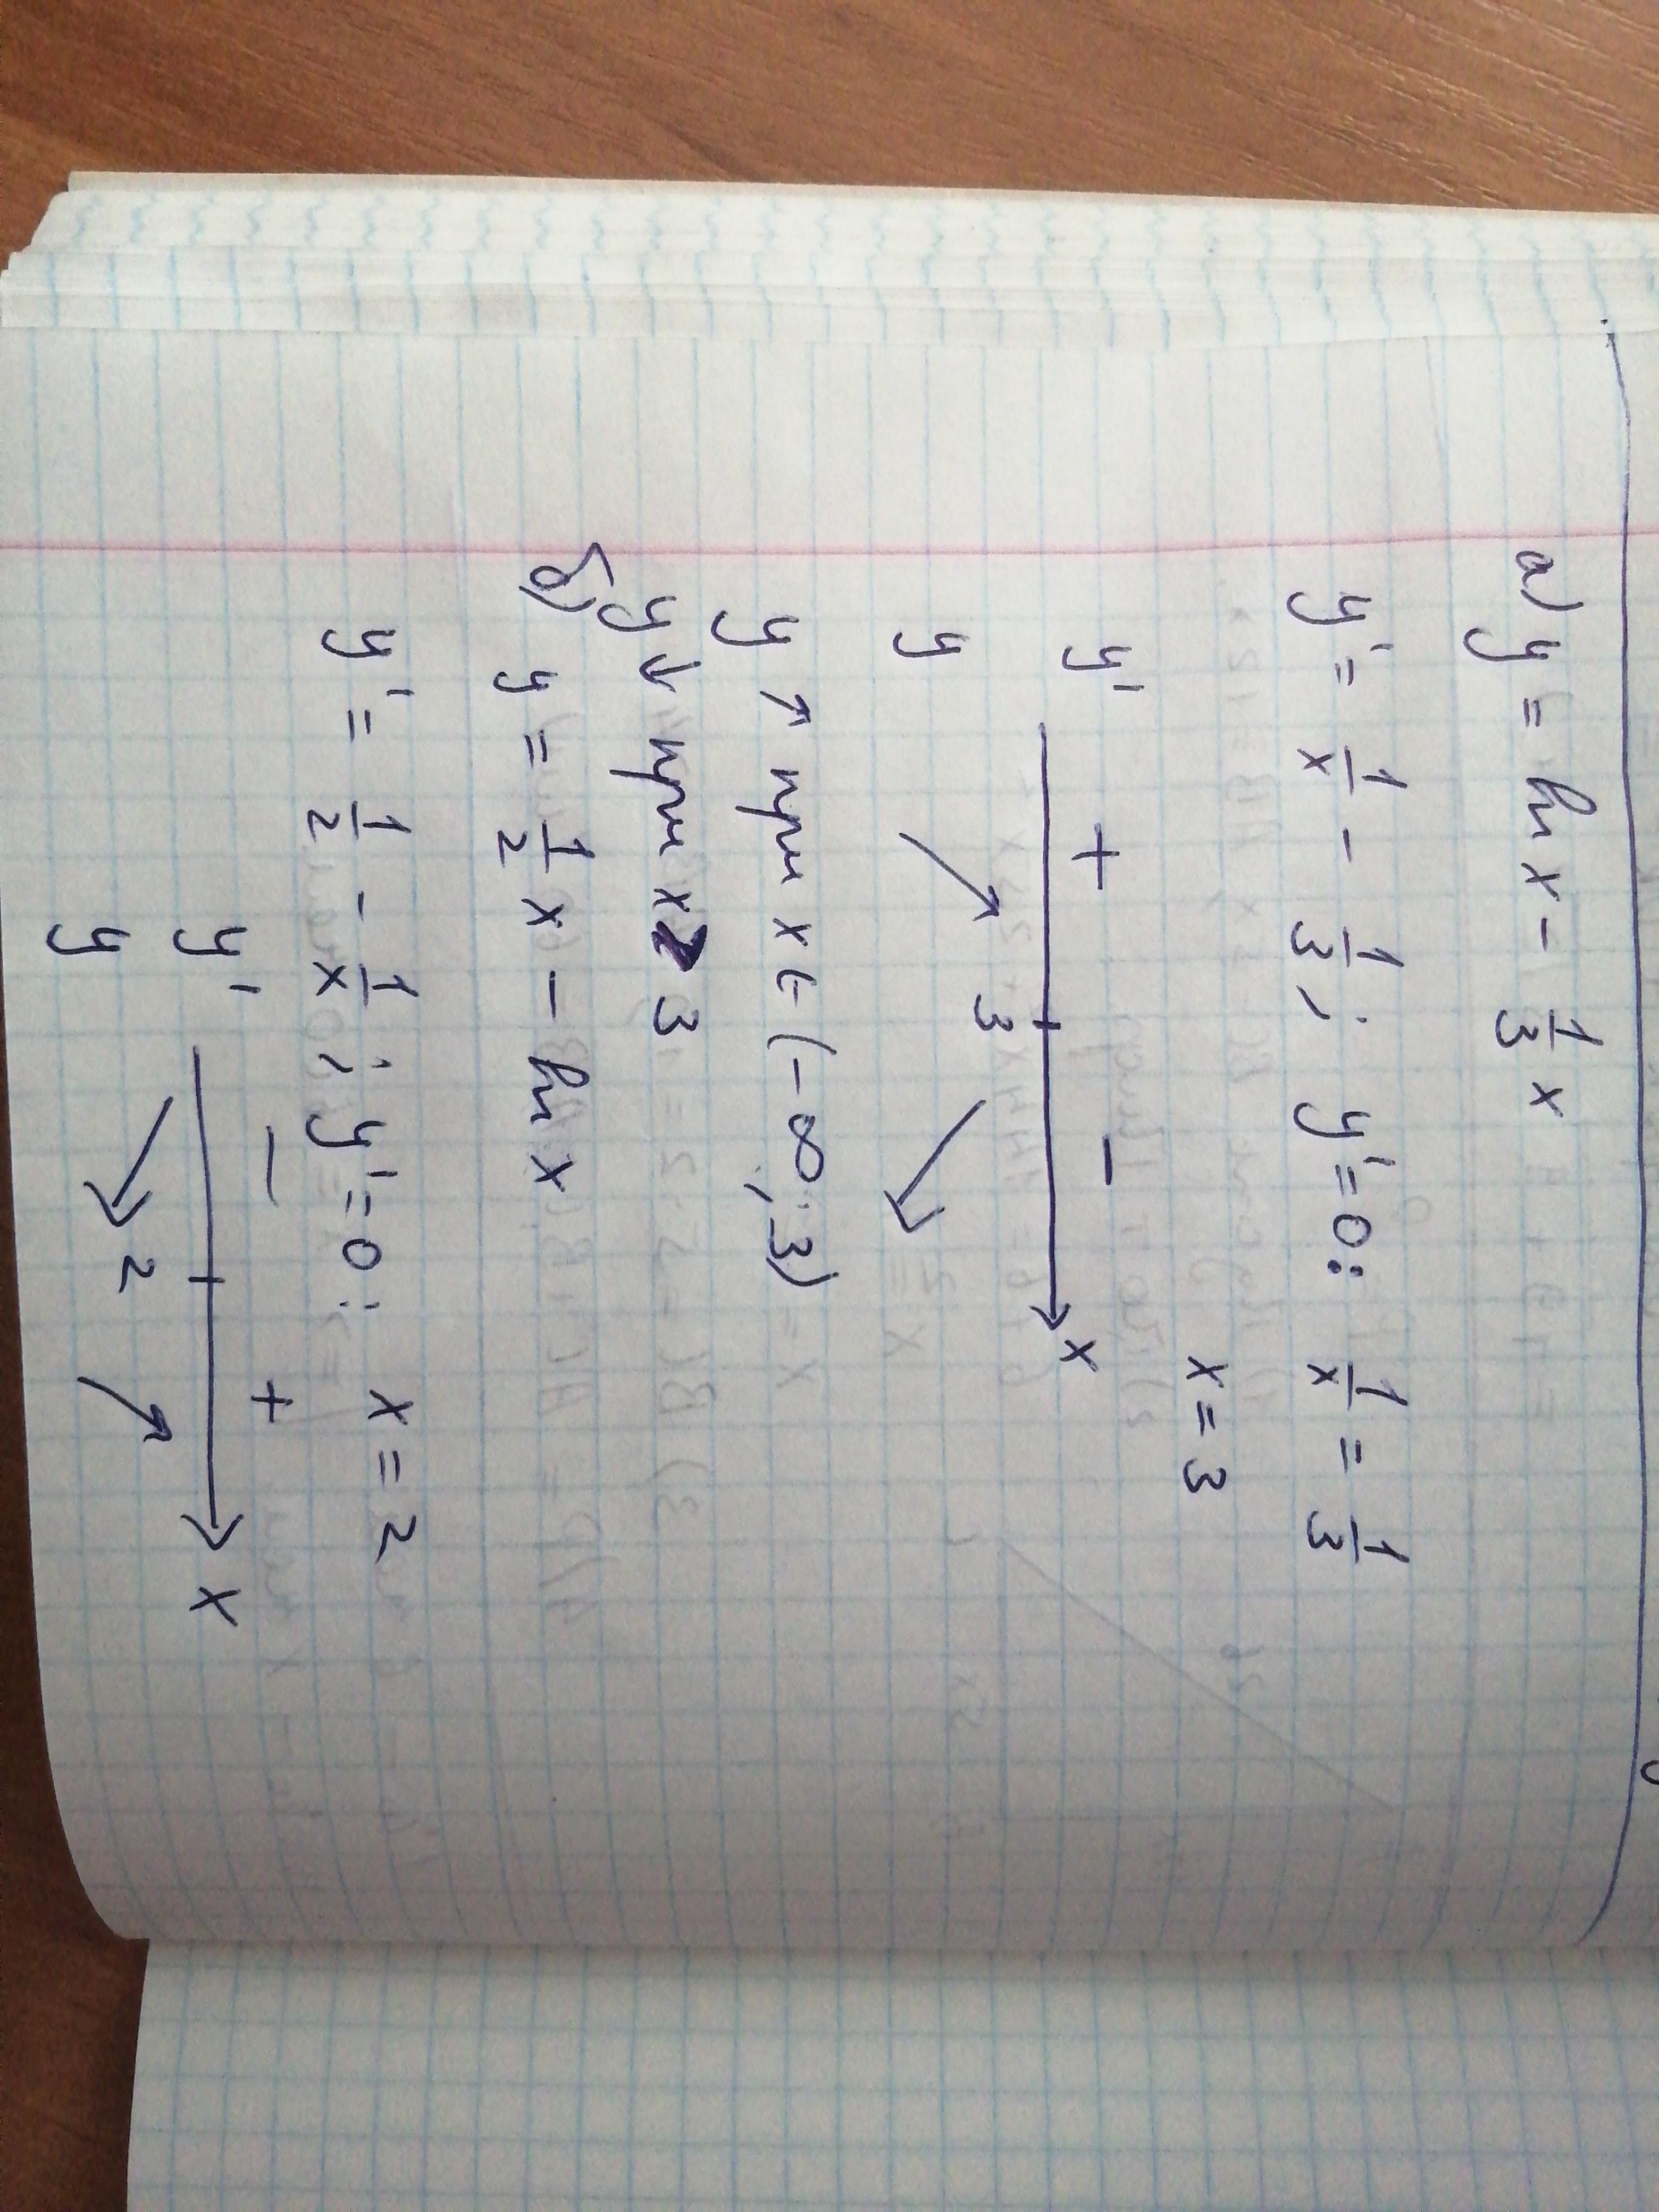 а) y = ln x - 1/3 x
y' = 1/x - 1/3; y' = 0: 1/x = 1/3
x = 3
y' + - x
y ↗ 3 ↘
y ↑ при x ∈ (-∞; 3)
y ↓ при x > 3
б) y = 1/2 x - ln x
y' = 1/2 - 1/x; y' = 0: x = 2
y' - + x
y ↘ 2 ↗